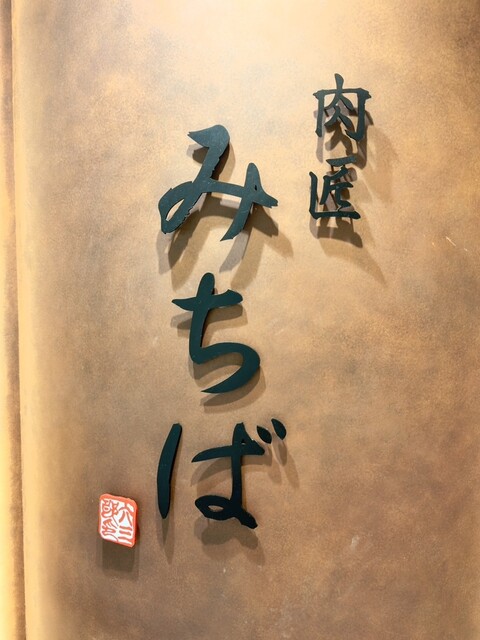 肉匠
みちば